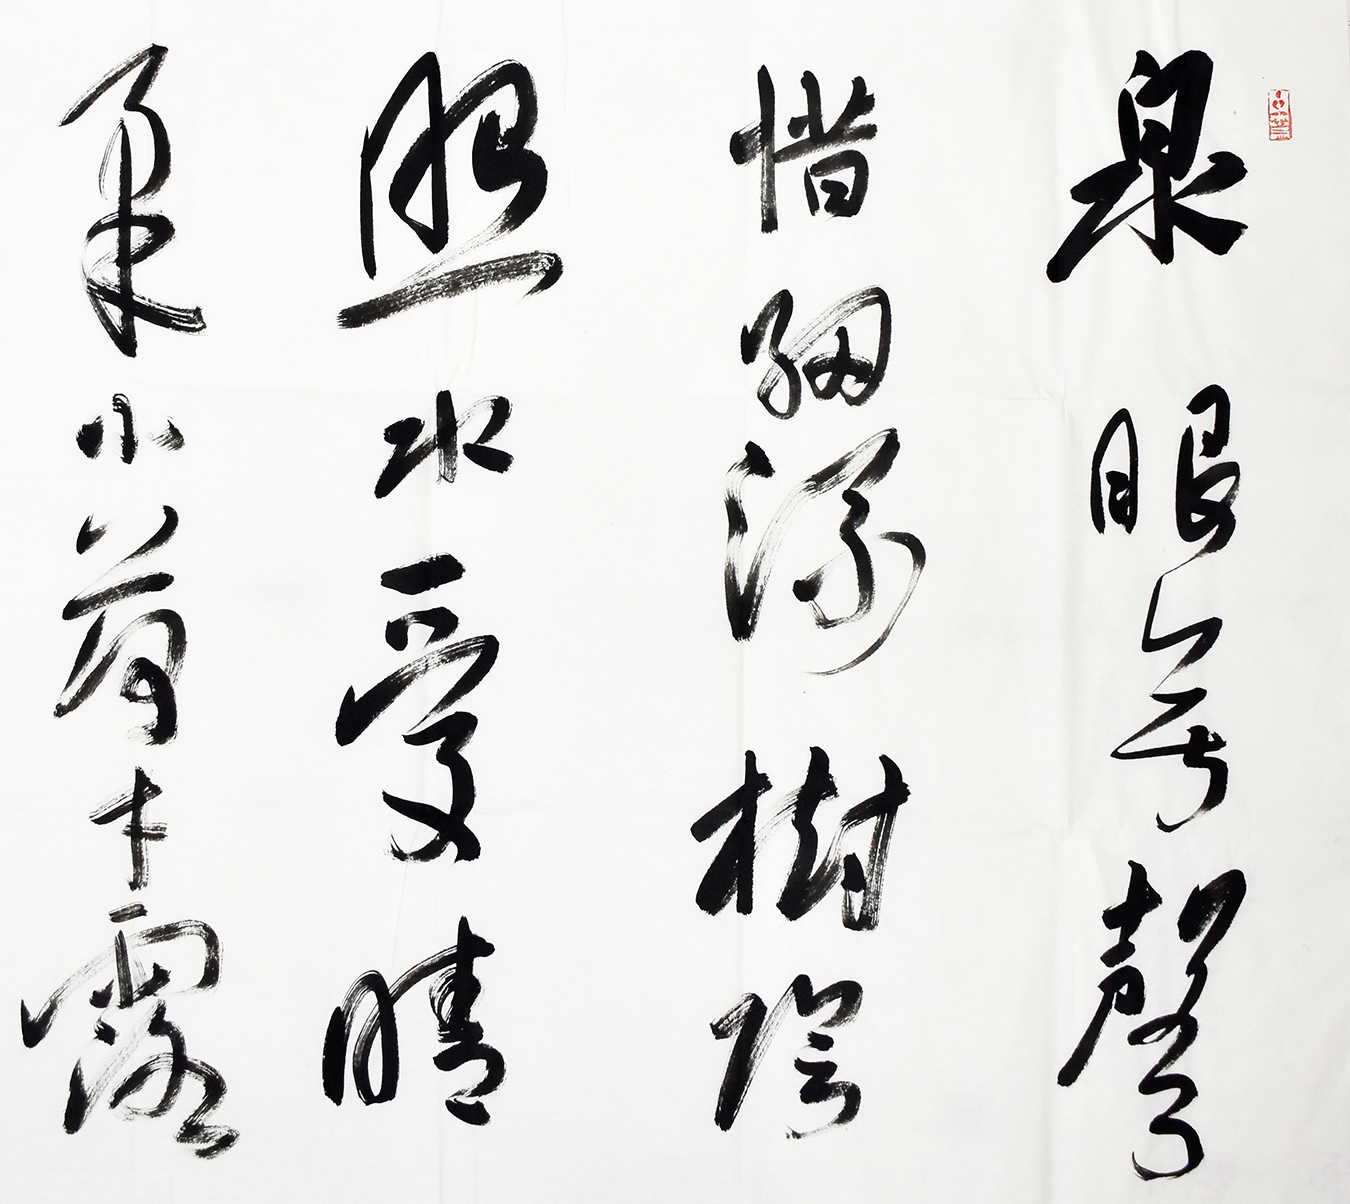 泉眼無聲
惜細流樹陰
照水愛晴
柔小荷才露